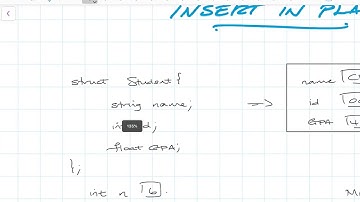 INSERT IN PLA
struct Student {
name
string name;
id
135%
float GPA;
GPA 4
};
int n 6